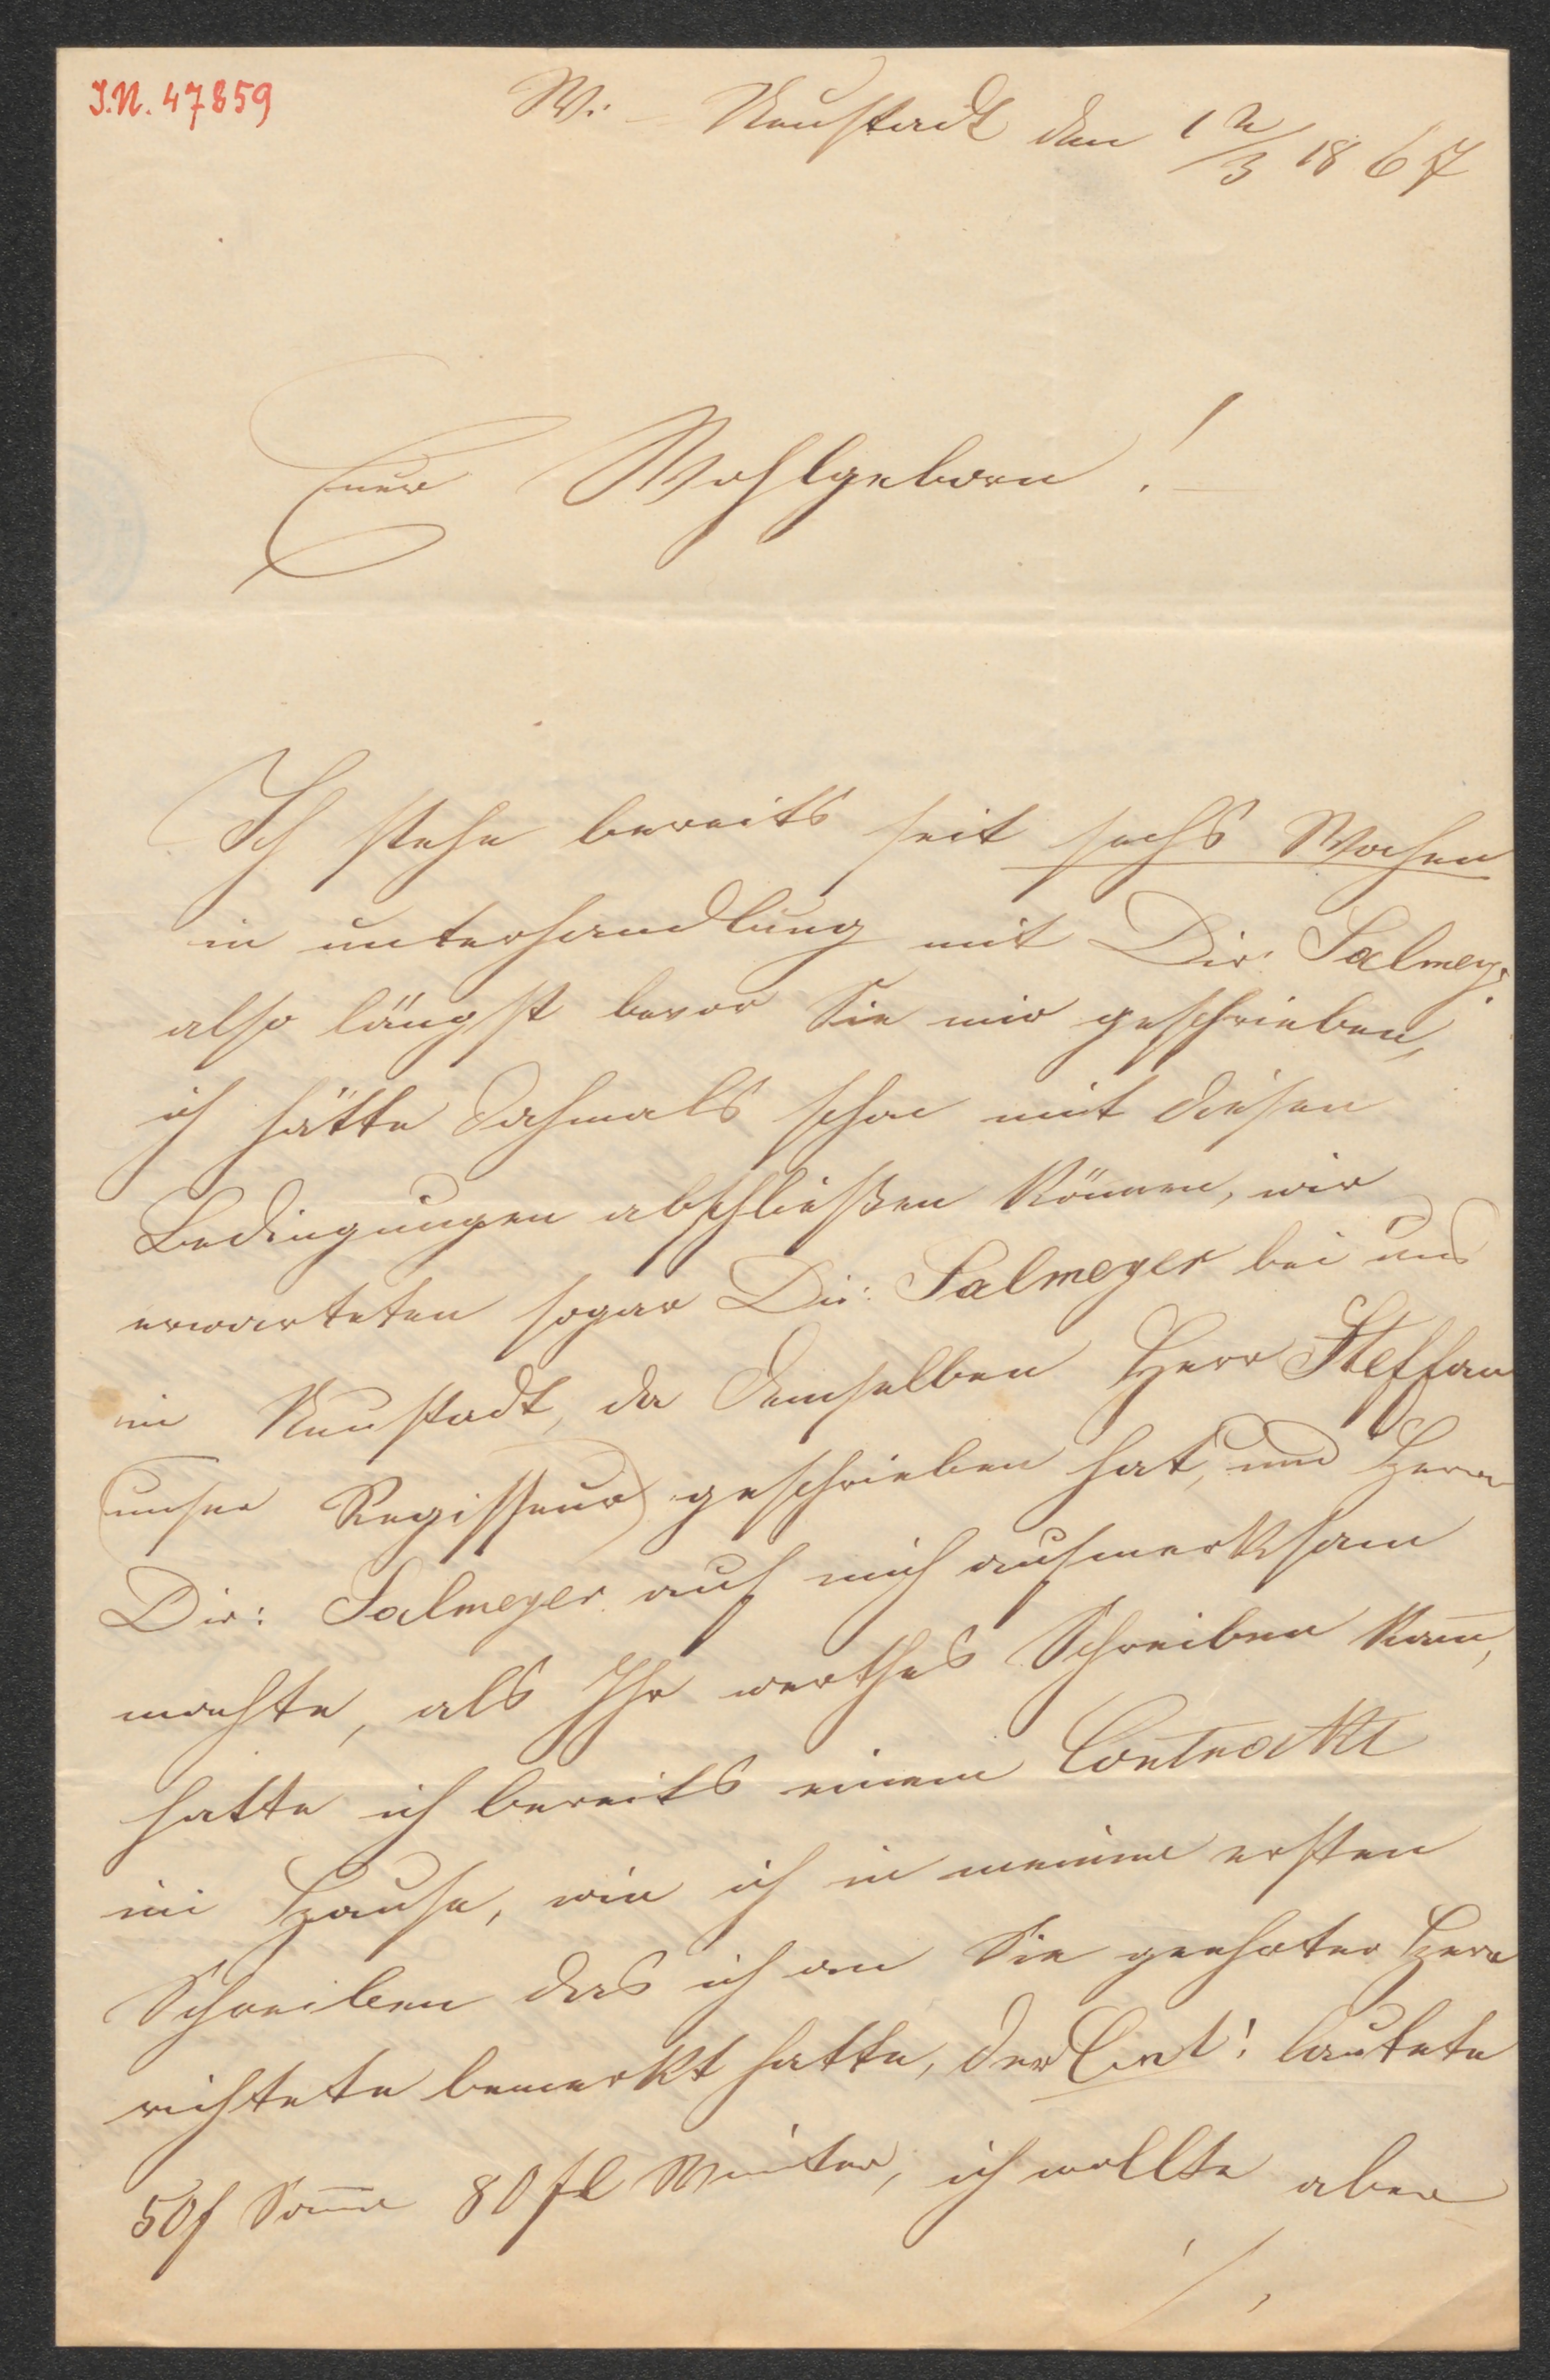 I.N. 47859
W: – Neustadt den 12/3 1867
Euer Wohlgeborn! –
Ich stehe bereits seit sechs Wochen
in unterhandlung mit Dir: Salmey:
also längst bevor Sie mir geschrieben,
ich hätte dahmals schon mit diesen
Bedingungen abschließen können, wir
erwarteten sogar Dir: Salmeyer bei uns
in Neustadt, da demselben Herr Steffan
(unser Regisseur) geschrieben hat, und Herrn
Dir: Salmeyer auf mich aufmerksam
machte, als Ihr werthes Schreiben kam̅,
hatte ich bereits einen Contrakt
im Hause, wie ich in meinem ersten
Schreiben das ich an Sie geehrter Herr
richtete bemerkt hatte, der Cont: lautete
50f Som̅er 80 fl Winter, ich wollte aber
./.